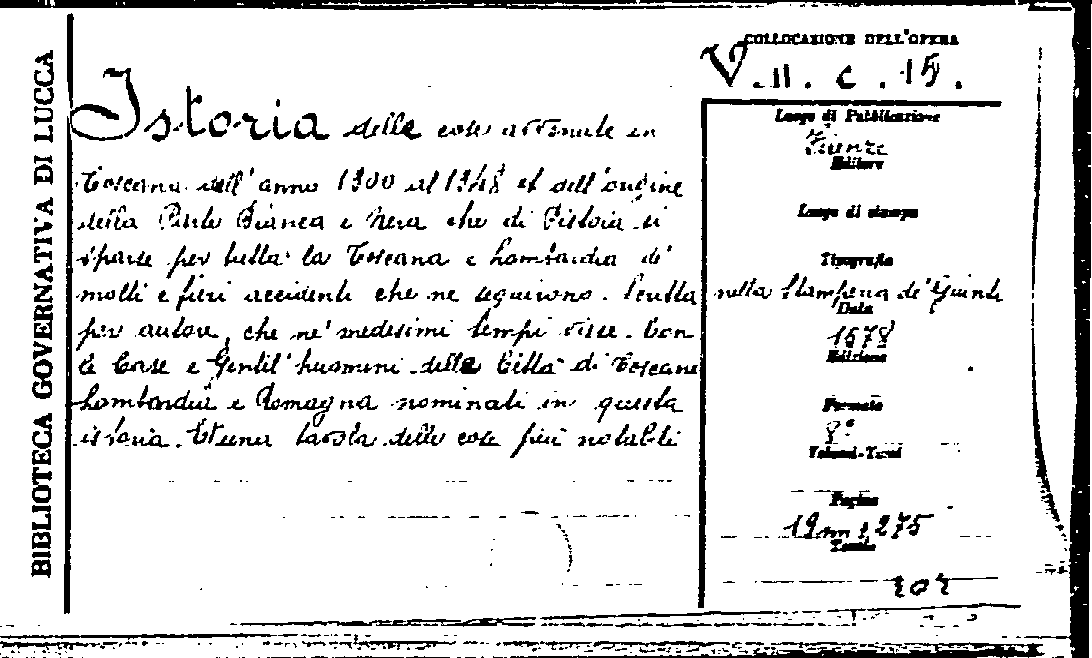 BIBLIOTECA GOVERNATIVA DI LUCCA
Istoria delle cose avvenute in
Toscana dell'anno 1300 al 1348 et dell'origine
della Parte Bianca e Nera che di Pistoia si
sparse per tutta la Toscana e Lombardia de'
molti e fieri accidenti che ne seguirono. Scritta
per autore, che ne' medesimi tempi visse. Con
le Case e Gentil'huomini delle Città di Toscana
Lombardia e Romagna nominati in questa
istoria. Et una tavola delle cose più notabili
COLLOCAZIONE DELL'OPERA
V. II. c. 15.
Luogo di Pubblicazione
Firenze
Editore
Luogo di stampa
Tipografia
nella Stamperia de' Giunti
Data
1578
Edizione
Formato
8°
Volumi-Tomi
Pagine
275
Tavole